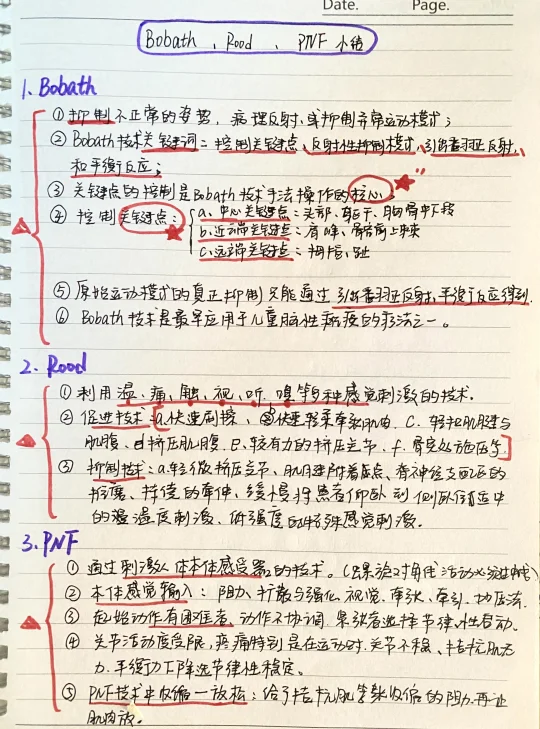 Date.    Page.
Bobath 、Rood 、 PNF 小结
1. Bobath
① 抑制不正常的姿势，病理反射，或抑制异常运动模式；
② Bobath技术关键词＝控制关键点、反射性抑制模式、引出翻正反射、
和平衡反应；
③ 关键点的控制是Bobath技术手法操作的核心；
④ 控制关键点：
a、中心关键点：头部、躯干、胸骨中下段
b、近端关键点：肩峰、髂前上棘
c、远端关键点：拇指、趾
⑤ 原始运动模式的真正抑制只能通过引出翻正反射，平衡反应得到.
⑥ Bobath技术是最早应用于儿童脑性瘫痪的疗法之一。
2. Rood
① 利用温、痛、触、视、听、嗅等多种感觉刺激的技术.
② 促进技术：a.快速刷擦、b快速轻柔牵张肌肉. C. 轻扣肌腱与
肌腹、d 挤压肌腹. e、较有力的挤压关节、f. 骨突处施压
③ 抑制技术：a、轻微挤压关节、肌腱附着点、脊神经支配区的
、持续的牵伸、缓慢将患者仰卧到侧卧位适中
的温湿度刺激、低强度的特殊感觉刺激.
3. PNF
① 通过刺激人体本体感受器的技术。
② 本体感觉输入：阻力、扩散与强化 视觉、牵张、牵引、挤压法.
③ 起始动作有困难者，动作不协调 紧张者选择节律性启动.
④ 关节活动度受限，疼痛特别是在运动时、关节不稳、拮抗肌无
力、平衡功下降选节律性稳定。
⑤ PNF技术中收缩－放松：给予拮抗肌等张收缩的阻力，再让
肌肉放。